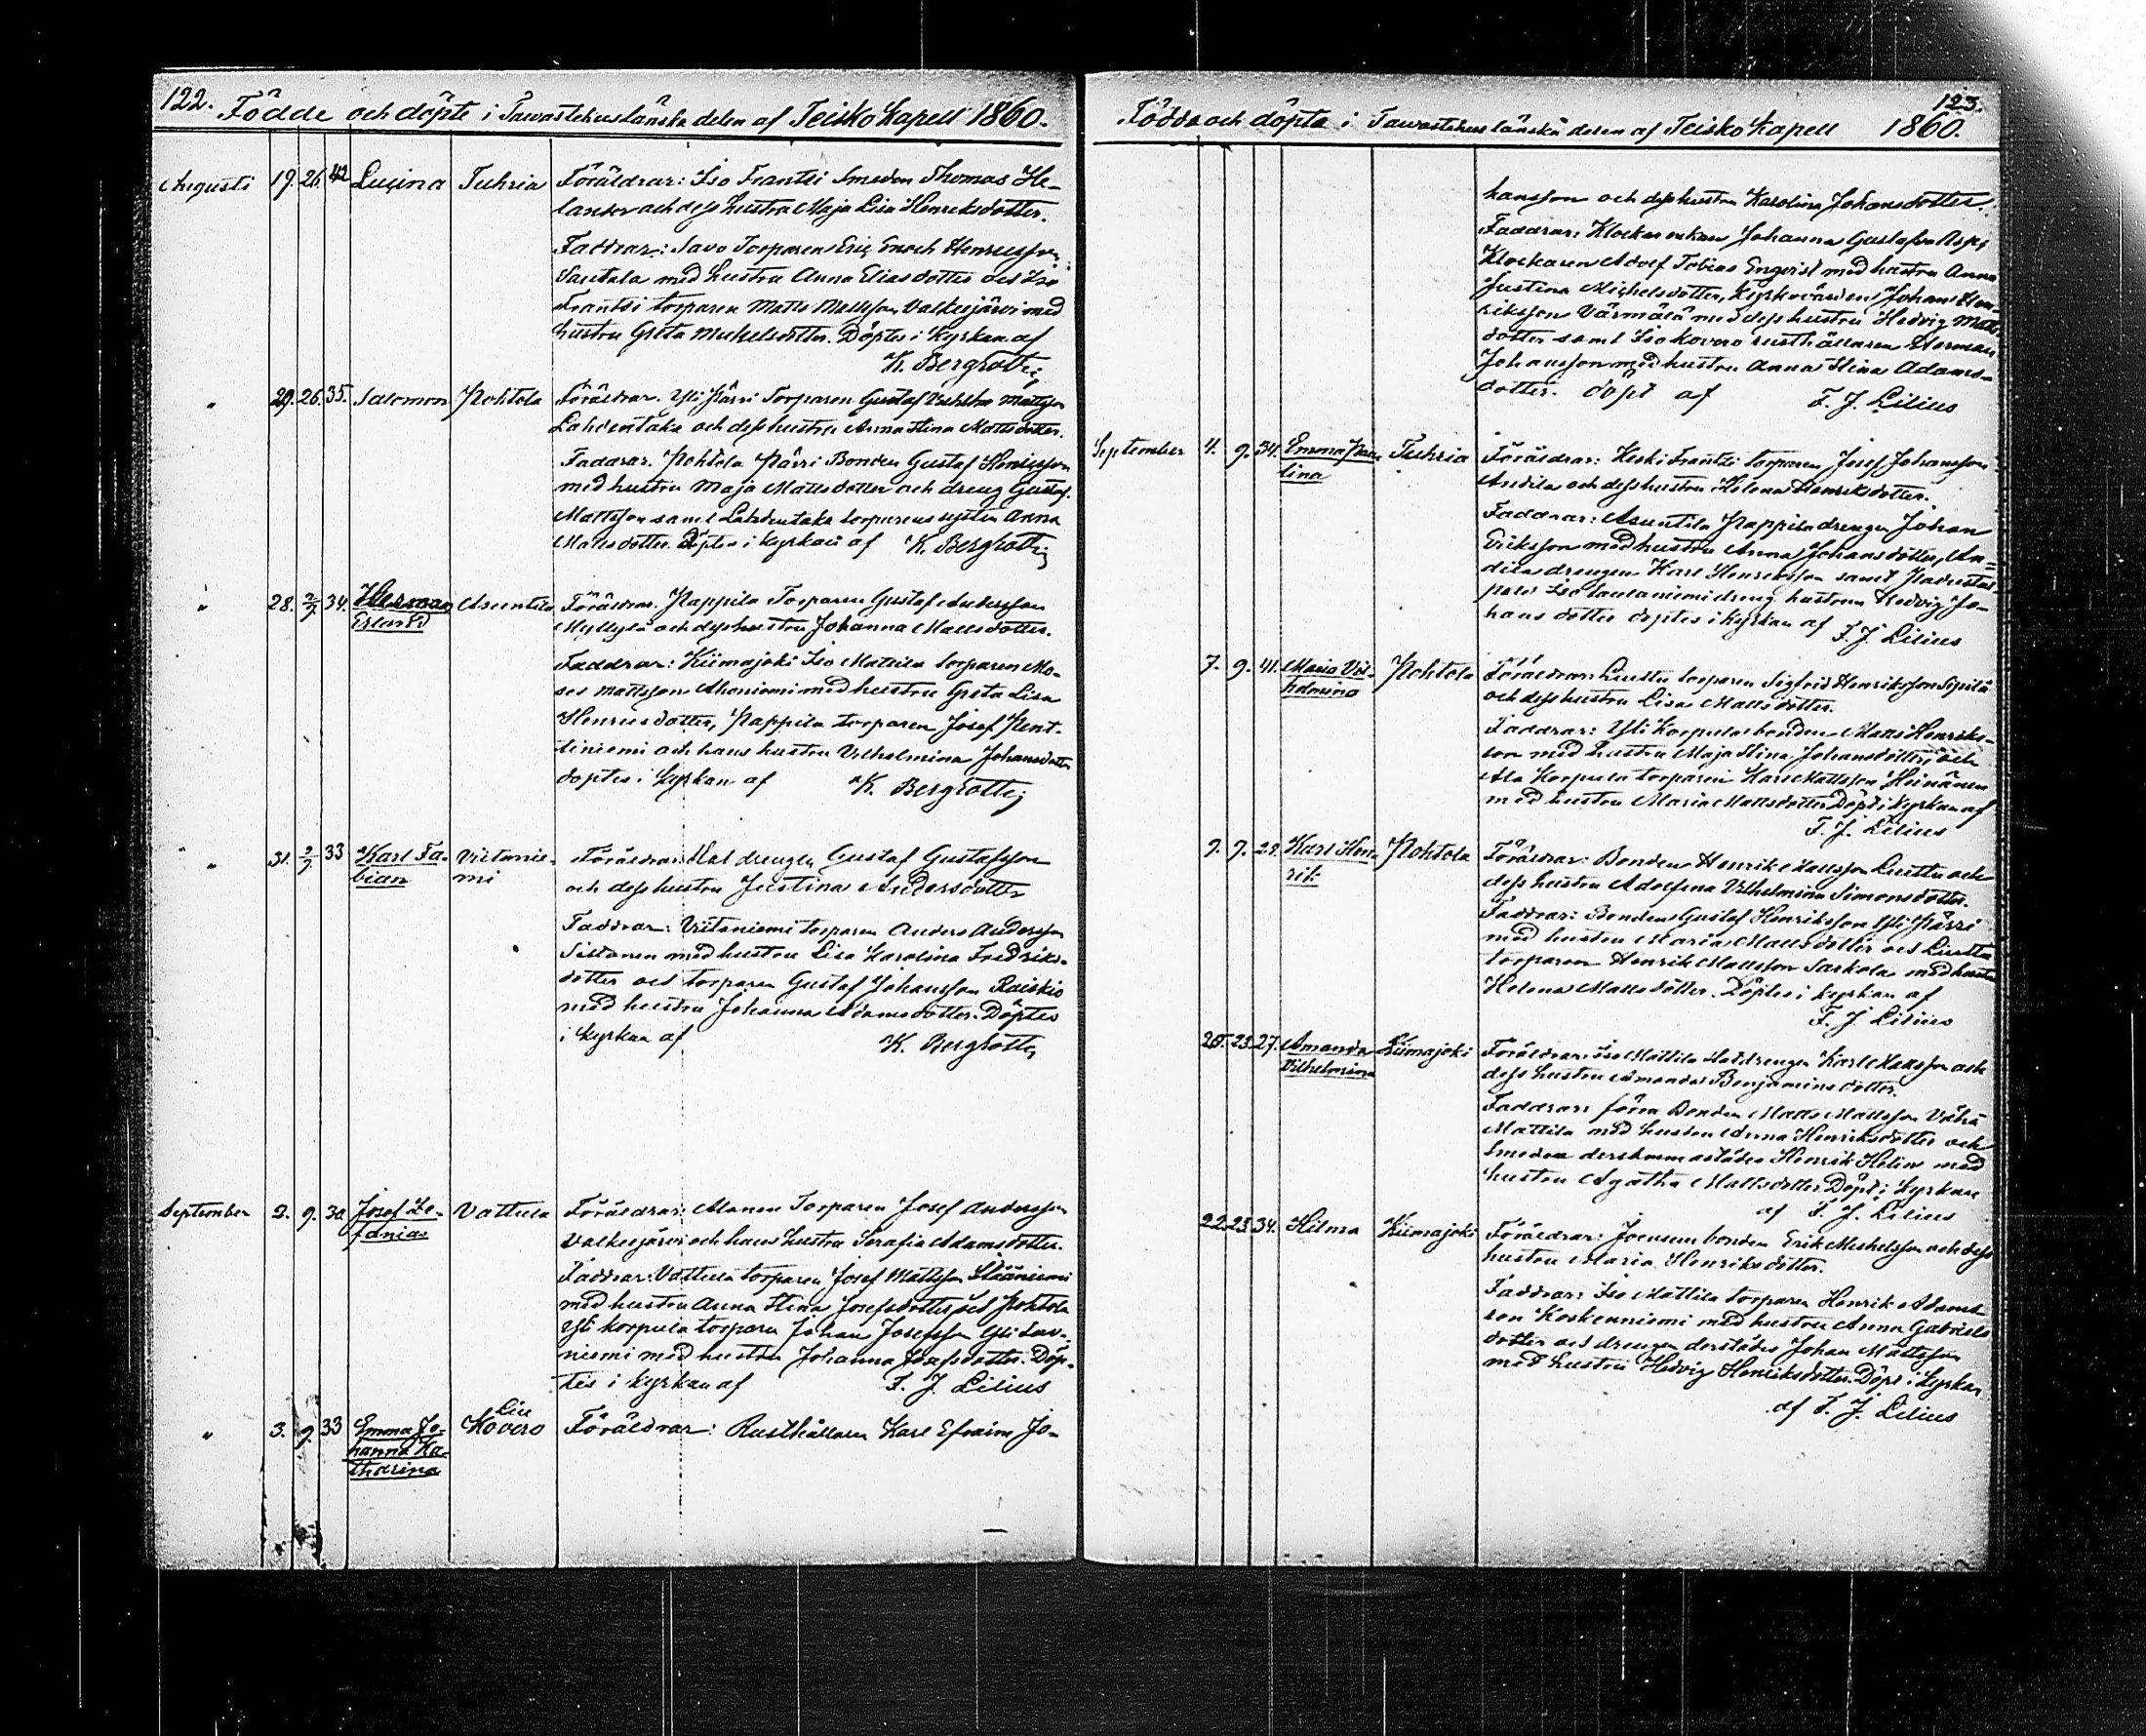 122. Födde och döpte i Tawastehus länska delen af Teisko Kapell 1860.
Augusti 19. 26. 42 Lucina Tuhria Föräldrar: Iso Frantsi Smeden Thomas He-
lander och dess hustru Maja Lisa Henriksdotter.
Faddrar: Savo Torparen Eric Enoch Henricsson
Santala med hustru Anna Eliasdotter och Iso
Frantsi torparen Matts Mattsson Valkeejärvi med
hustru Greta Michelsdotter. Döptes i Kyrkan af
K. Bergroth
" 20. 26. 35. Salomon Pohtola Föräldrar. Yli Pärri Torparen Gustaf Mattsson
Lahdentaka och dess hustru Anna Stina Mattsdotter.
Faddrar. Pohtola Pärri Bonden Gustaf Henricsson
med hustru Maja Mattsdotter och dreng Gustaf
Mattsson samt Lahdentaka torparens syster Anna
Mattsdotter. Döptes i kyrkan af K. Bergroth
" 28. 2/9 34. Herman Asuntila Föräldrar. Pappila Torparen Gustaf Andersson
Erland Myllylä och dess hustru Johanna Mattsdotter.
Faddrar: Kiimajoki Iso Mattila torparen Mo-
ses Mattsson Ahoniemi med hustru Greta Lisa
Henricsdotter, Pappila torparen Josef Pent-
tiniemi och hans hustru Vilhelmina Johansdotter
döptes i kyrkan af K. Bergroth
" 31. 2/9 33 Karl Fa- Viitanie- Föräldrar: Hal drengen Gustaf Gustafsson
bian mi och dess hustru Justina Andersdotter
Faddrar: Viitaniemi torparen Anders Andersson
Siltanen med hustru Lisa Karolina Fredriks-
dotter och torparen Gustaf Johansson Raiskio
med hustru Johanna Adamsdotter. Döptes
i kyrkan af K. Bergroth
September 2. 9. 30 Josef Ze- Vattula Föräldrar: Manen Torparen Josef Andersson
fanias Valkeejärvi och hans hustru Serafia Adamsdotter.
Faddrar: Vattula torparen Josef Mattsson Stääniemi
med hustru Anna Stina Josefsdotter och Pohtola
Yli korpula torparen Johan Josefsson Yli Sav-
niemi med hustru Johanna Josefsdotter. Döp-
tes i kyrkan af F. J. Lilius
" 3. 9. 33 Emma Jo- Kovero Föräldrar: Rusthållaren Karl Efraim Jo-
hanna Ka-
tharina
123.
Födda och döpta i Tawastehus länska delen af Teisko Kapell 1860.
hansson och dess hustru Karolina Johansdotter.
Faddrar: Klockar enkan Johanna Gustafva Asp,
Klockaren Adolf Tobias Engvist med hustru Anna
Justina Michelsdotter, Kyrkovärden Johan Hen-
riksson Värmälä med dess hustru Hedvig Matts
dotter samt Iso kovero rusthållaren Herman
Johansson med hustru Anna Stina Adams-
dotter. döpt af F. J. Lilius
September 4. 9. 34. Emma Pau- Tuhria Föräldrar: Keski Frantsi torparen Josef Johansson
lina Andila och dess hustru Helena Henriksdotter.
Faddrar: Asuntila Pappila drengen Johan
Eriksson med hustru Anna Johansdotter, An-
dila drengen Karl Henriksson samt
Iso Saulaniemi dreng hustrun Hedvig Jo-
hans dotter döptes i kyrkan af F. J. Lilius
7. 9. 41. Maria Vil- Pohtola Föräldrar: Luuttu torparen Sigfrid Henriksson Sipilä
helmina och dess hustru Lisa Mattsdotter.
Faddrar: Yli Korpula bonden Matts Henriks-
son med hustru Maja Stina Johansdotter, och
Ala Korpula torparen Karl Mattsson Heinänen
med hustru Maria Mattsdotter Döpt i kyrkan af
F. J. Lilius
7. 9. 29. Karl Hen- Pohtola Föräldrar: Bonden Henrik Mattsson Luuttu och
rik dess hustru Adolfina Vilhelmina Simonsdotter.
Faddrar: Bonden Gustaf Henriksson Yli Pärri
med hustru Maria Mattsdotter och Luuttu
torparen Henrik Mattsson Saskola med hustru
Helena Mattsdotter. Döptes i kyrkan af
F. J. Lilius
20. 23. 27. Amanda Kiimajoki Föräldrar: Iso Mattila Haldrengen Karl Mattsson och
Vilhelmina dess hustru Amanda Benjaminsdotter.
Faddrar: förra Bonden Matts Mattsson Vähä
Mattila med hustru Anna Henriksdotter och
Smeden dersammastädes Henrik Helin med
hustru Agatha Mattsdotter. Döpt i kyrkan
af F. J. Lilius
22. 23. 34. Hilma Kiimajoki Föräldrar: Joensuu bonden Erik Michelsson och dess
hustru Maria Henriksdotter.
Faddrar: Iso Mattila torparen Henrik Adams-
son Koskenniemi med hustru Anna Gabriels
dotter och drengen derstädes Johan Mattsson
med hustru Hedvig Henriksdotter. Döpt i kyrkan
af F. J. Lilius